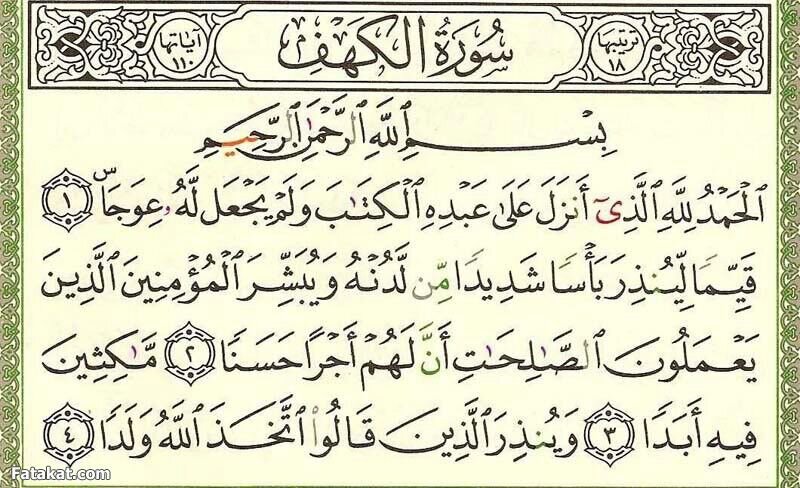 ترتيبها ١٨ سُورَةُ الكَهْفِ آياتها ١١٠
بِسْمِ ٱللَّهِ ٱلرَّحْمَٰنِ ٱلرَّحِيمِ
ٱلْحَمْدُ لِلَّهِ ٱلَّذِىٓ أَنزَلَ عَلَىٰ عَبْدِهِ ٱلْكِتَٰبَ وَلَمْ يَجْعَل لَّهُۥ عِوَجَاۜ ١
قَيِّمًا لِّيُنذِرَ بَأْسًا شَدِيدًا مِّن لَّدُنْهُ وَيُبَشِّرَ ٱلْمُؤْمِنِينَ ٱلَّذِينَ
يَعْمَلُونَ ٱلصَّٰلِحَٰتِ أَنَّ لَهُمْ أَجْرًا حَسَنًا ٢ مَّٰكِثِينَ
فِيهِ أَبَدًا ٣ وَيُنذِرَ ٱلَّذِينَ قَالُوا۟ ٱتَّخَذَ ٱللَّهُ وَلَدًا ٤
Fatakat.com